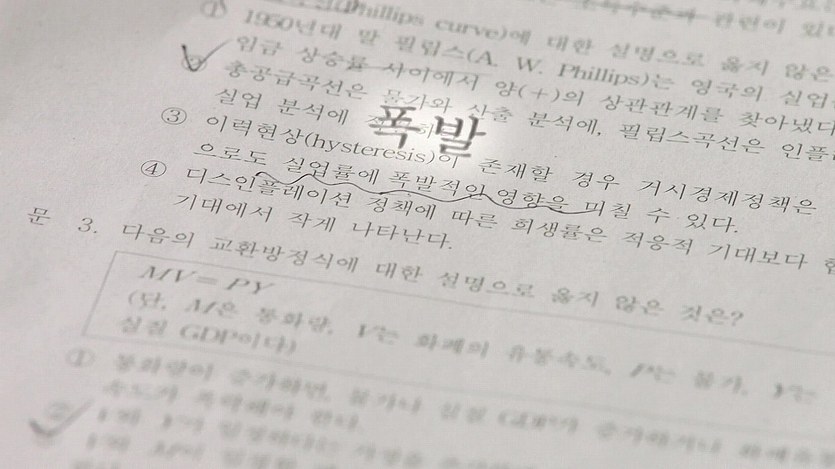 (Phillips curve)에 대한 설명으로 옳지 않은
① 1950년대 말 필립스(A. W. Phillips)는 영국의 실업
임금 상승률 사이에서 양(+)의 상관관계를 찾아냈다
② 총공급곡선은 물가와 산출 분석에, 필립스곡선은 인플
실업 분석에
폭발
③ 이력현상(hysteresis)이 존재할 경우 거시경제정책은
으로도 실업률에 폭발적인 영향을 미칠 수 있다.
④ 디스인플레이션 정책에 따른 희생률은 적응적 기대보다 합
기대에서 작게 나타난다.
문 3. 다음의 교환방정식에 대한 설명으로 옳지 않은 것은?
MV=PY
(단, M은 통화량, V는 화폐의 유통속도, P는 물가, Y는
실질 GDP이다)
① 통화량이 증가하면, 물가나 실질 GDP가 증가하거나 화폐유통
속도가 하락해야 한다.
②